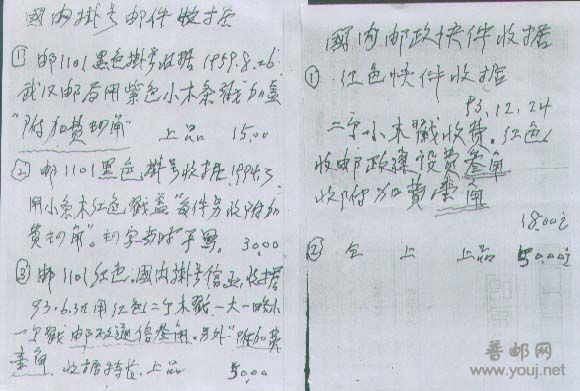 國内掛号邮件收据
① 邮1101黑色掛号收据 1959.8.26
武汉邮局用紫色小木条戳加盖
"附加费叨角" 上品 15.00
② 邮1101黑色掛号收据,1994.5
用小条木红色戳盖"每件另收附加
费叨角"。叨字当时手写。 30.00
③ 邮1101红色。國内掛号信函收据
93.6.30用红色二个木戳,一大一小
一字戳 邮政通信叁角。另外"附加费
壹角 收据特长,上品 50.00
國内邮政快件收据
① 红色快件收据
93.12.24
二个小木戳收费。红色
收邮政建设费叁角
收附加费壹角
18.00
② 仝 上 上品 50.00
普邮网
www.youj.net